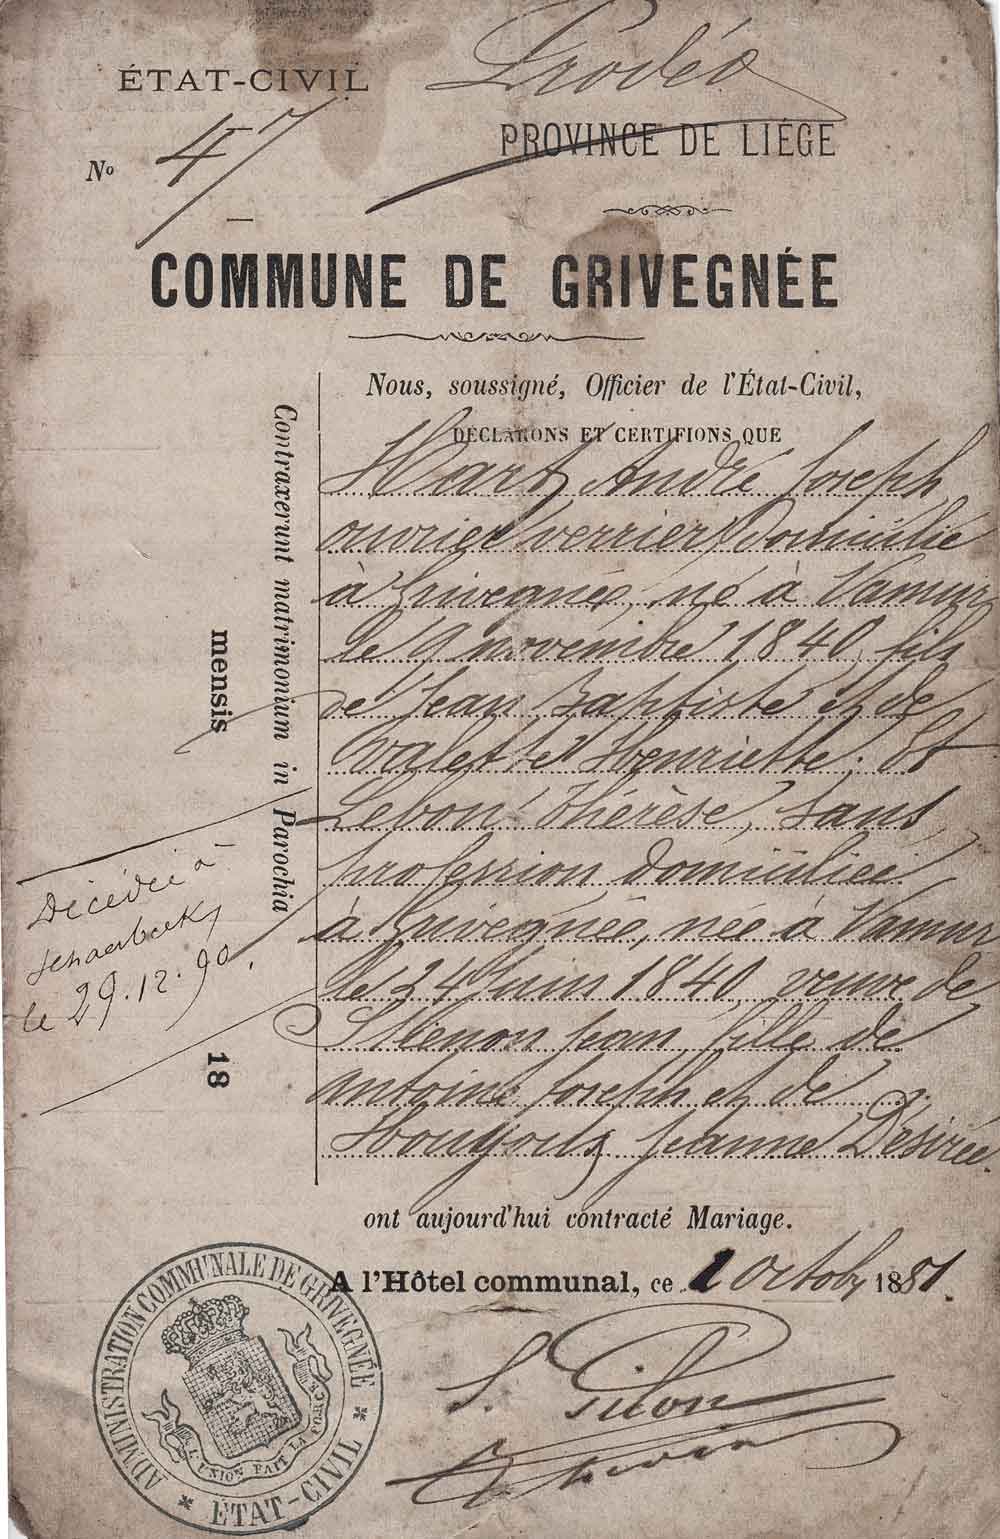 ÉTAT-CIVIL
N° 47
PROVINCE DE LIÉGE
COMMUNE DE GRIVEGNÉE
Nous, soussigné, Officier de l'État-Civil,
DÉCLARONS ET CERTIFIONS QUE
Hart, André Joseph
ouvrier verrier, domicilié
à Grivegnée, né à Namur
le 9 novembre 1840, fils
de Jean Baptiste et de
Valette Henriette. Et
Lebon Thérèse, sans
profession domiciliée
à Grivegnée, née à Namur
le 24 Juin 1840, veuve de
Jean, fille de
Antoine Joseph et de
Jeanne Désirée.
ont aujourd'hui contracté Mariage.
A l'Hôtel communal, ce 1 Octob 1881.
S. Pilon
Contraxerunt matrimonium in Parochia
mensis
18
Décédée à
Schaerbeek,
le 29.12.90.
ADMINISTRATION COMMUNALE DE GRIVEGNÉE
L'UNION FAIT LA FORCE
* ÉTAT-CIVIL *